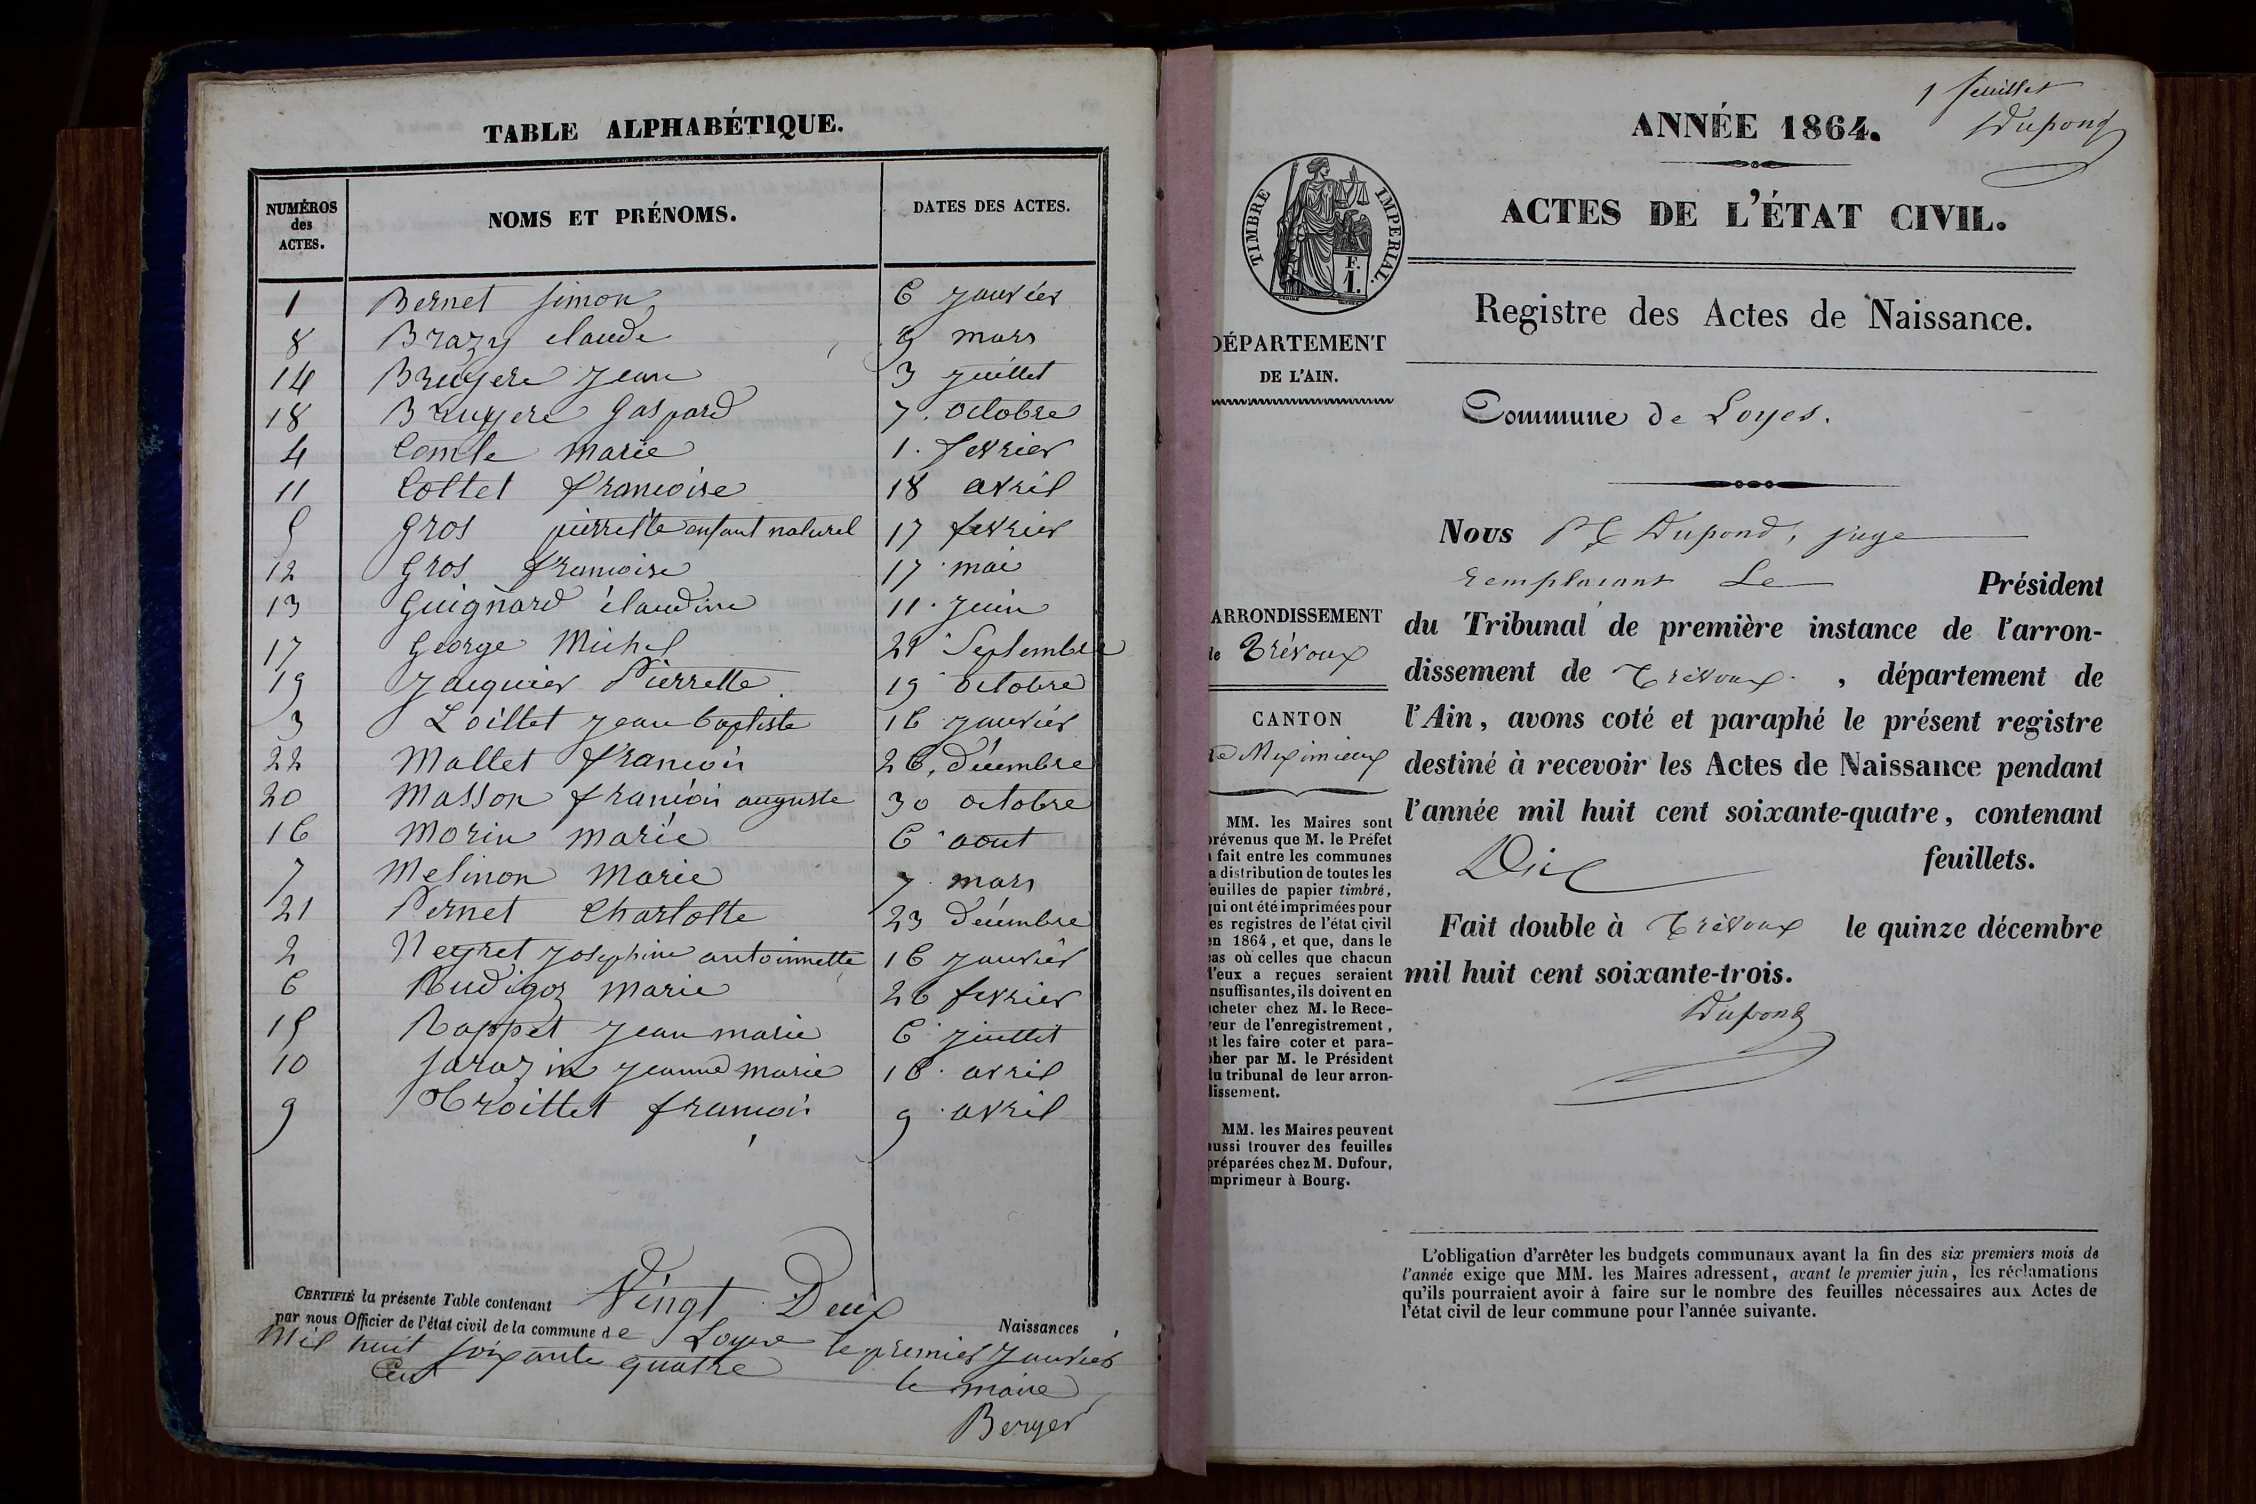 TABLE ALPHABÉTIQUE.
NUMÉROS des ACTES. NOMS ET PRÉNOMS. DATES DES ACTES.
1 Bernet Simon 6 janvier
8 Brazy claude 9 mars
14 Bruyere jean 3 juillet
18 Bruyere Gaspard 7. octobre
4 Comte Marie 1. fevrier
11 Cottet francoise 18 avril
5 Gros pierrette enfant naturel 17 fevrier
12 Gros francoise 17 mai
13 Guignard claudine 11. juin
17 George Michel 29 Septembre
19 Jacquier Pierrette 19 octobre
3 Loillet jean baptiste 16 janvier
22 Mallet francois 26, décembre
20 Masson francois auguste 30 octobre
16 Morin marie 6 aout
7 Melinon Marie 7. mars
21 Pernet Charlotte 23 décembre
2 Neyret josephine antoinnette 16 janvier
6 Rudigoz marie 26 fevrier
15 Rappet jean marie 6 juillet
10 Sarazin jeanne marie 16. avril
9 Troillet francois 9 avril
CERTIFIÉ la présente Table contenant Vingt Deux Naissances
par nous Officier de l'état civil de la commune de Loyes le premier janvier
Mil huit Cent soixante quatre
le maire
Berger
1 feuillet
Dupond
ANNÉE 1864.
ACTES DE L'ÉTAT CIVIL.
TIMBRE IMPERIAL.
F. 1.
Registre des Actes de Naissance.
DÉPARTEMENT
DE L'AIN.
Commune de Loyes.
ARRONDISSEMENT
de Trévoux
CANTON
de Meximieux
MM. les Maires sont
prévenus que M. le Préfet
a fait entre les communes
la distribution de toutes les
feuilles de papier timbré,
qui ont été imprimées pour
les registres de l'état civil
en 1864, et que, dans le
cas où celles que chacun
d'eux a reçues seraient
insuffisantes, ils doivent en
acheter chez M. le Rece-
veur de l'enregistrement,
et les faire coter et para-
pher par M. le Président
du tribunal de leur arron-
dissement.
MM. les Maires peuvent
aussi trouver des feuilles
préparées chez M. Dufour,
imprimeur à Bourg.
Nous Dupond, juge
remplacant Le Président
du Tribunal de première instance de l'arron-
dissement de Trévoux , département de
l'Ain, avons coté et paraphé le présent registre
destiné à recevoir les Actes de Naissance pendant
l'année mil huit cent soixante-quatre, contenant
Dix feuillets.
Fait double à Trévoux le quinze décembre
mil huit cent soixante-trois.
Dupond
L'obligation d'arrêter les budgets communaux avant la fin des six premiers mois de
l'année exige que MM. les Maires adressent, avant le premier juin, les réclamations
qu'ils pourraient avoir à faire sur le nombre des feuilles nécessaires aux Actes de
l'état civil de leur commune pour l'année suivante.